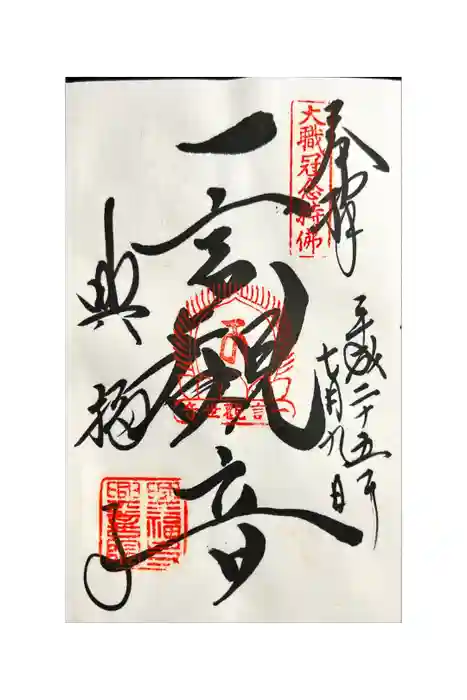 奉拝
大職冠念持佛
平成二十五年
七月九日
一言観音
興福寺